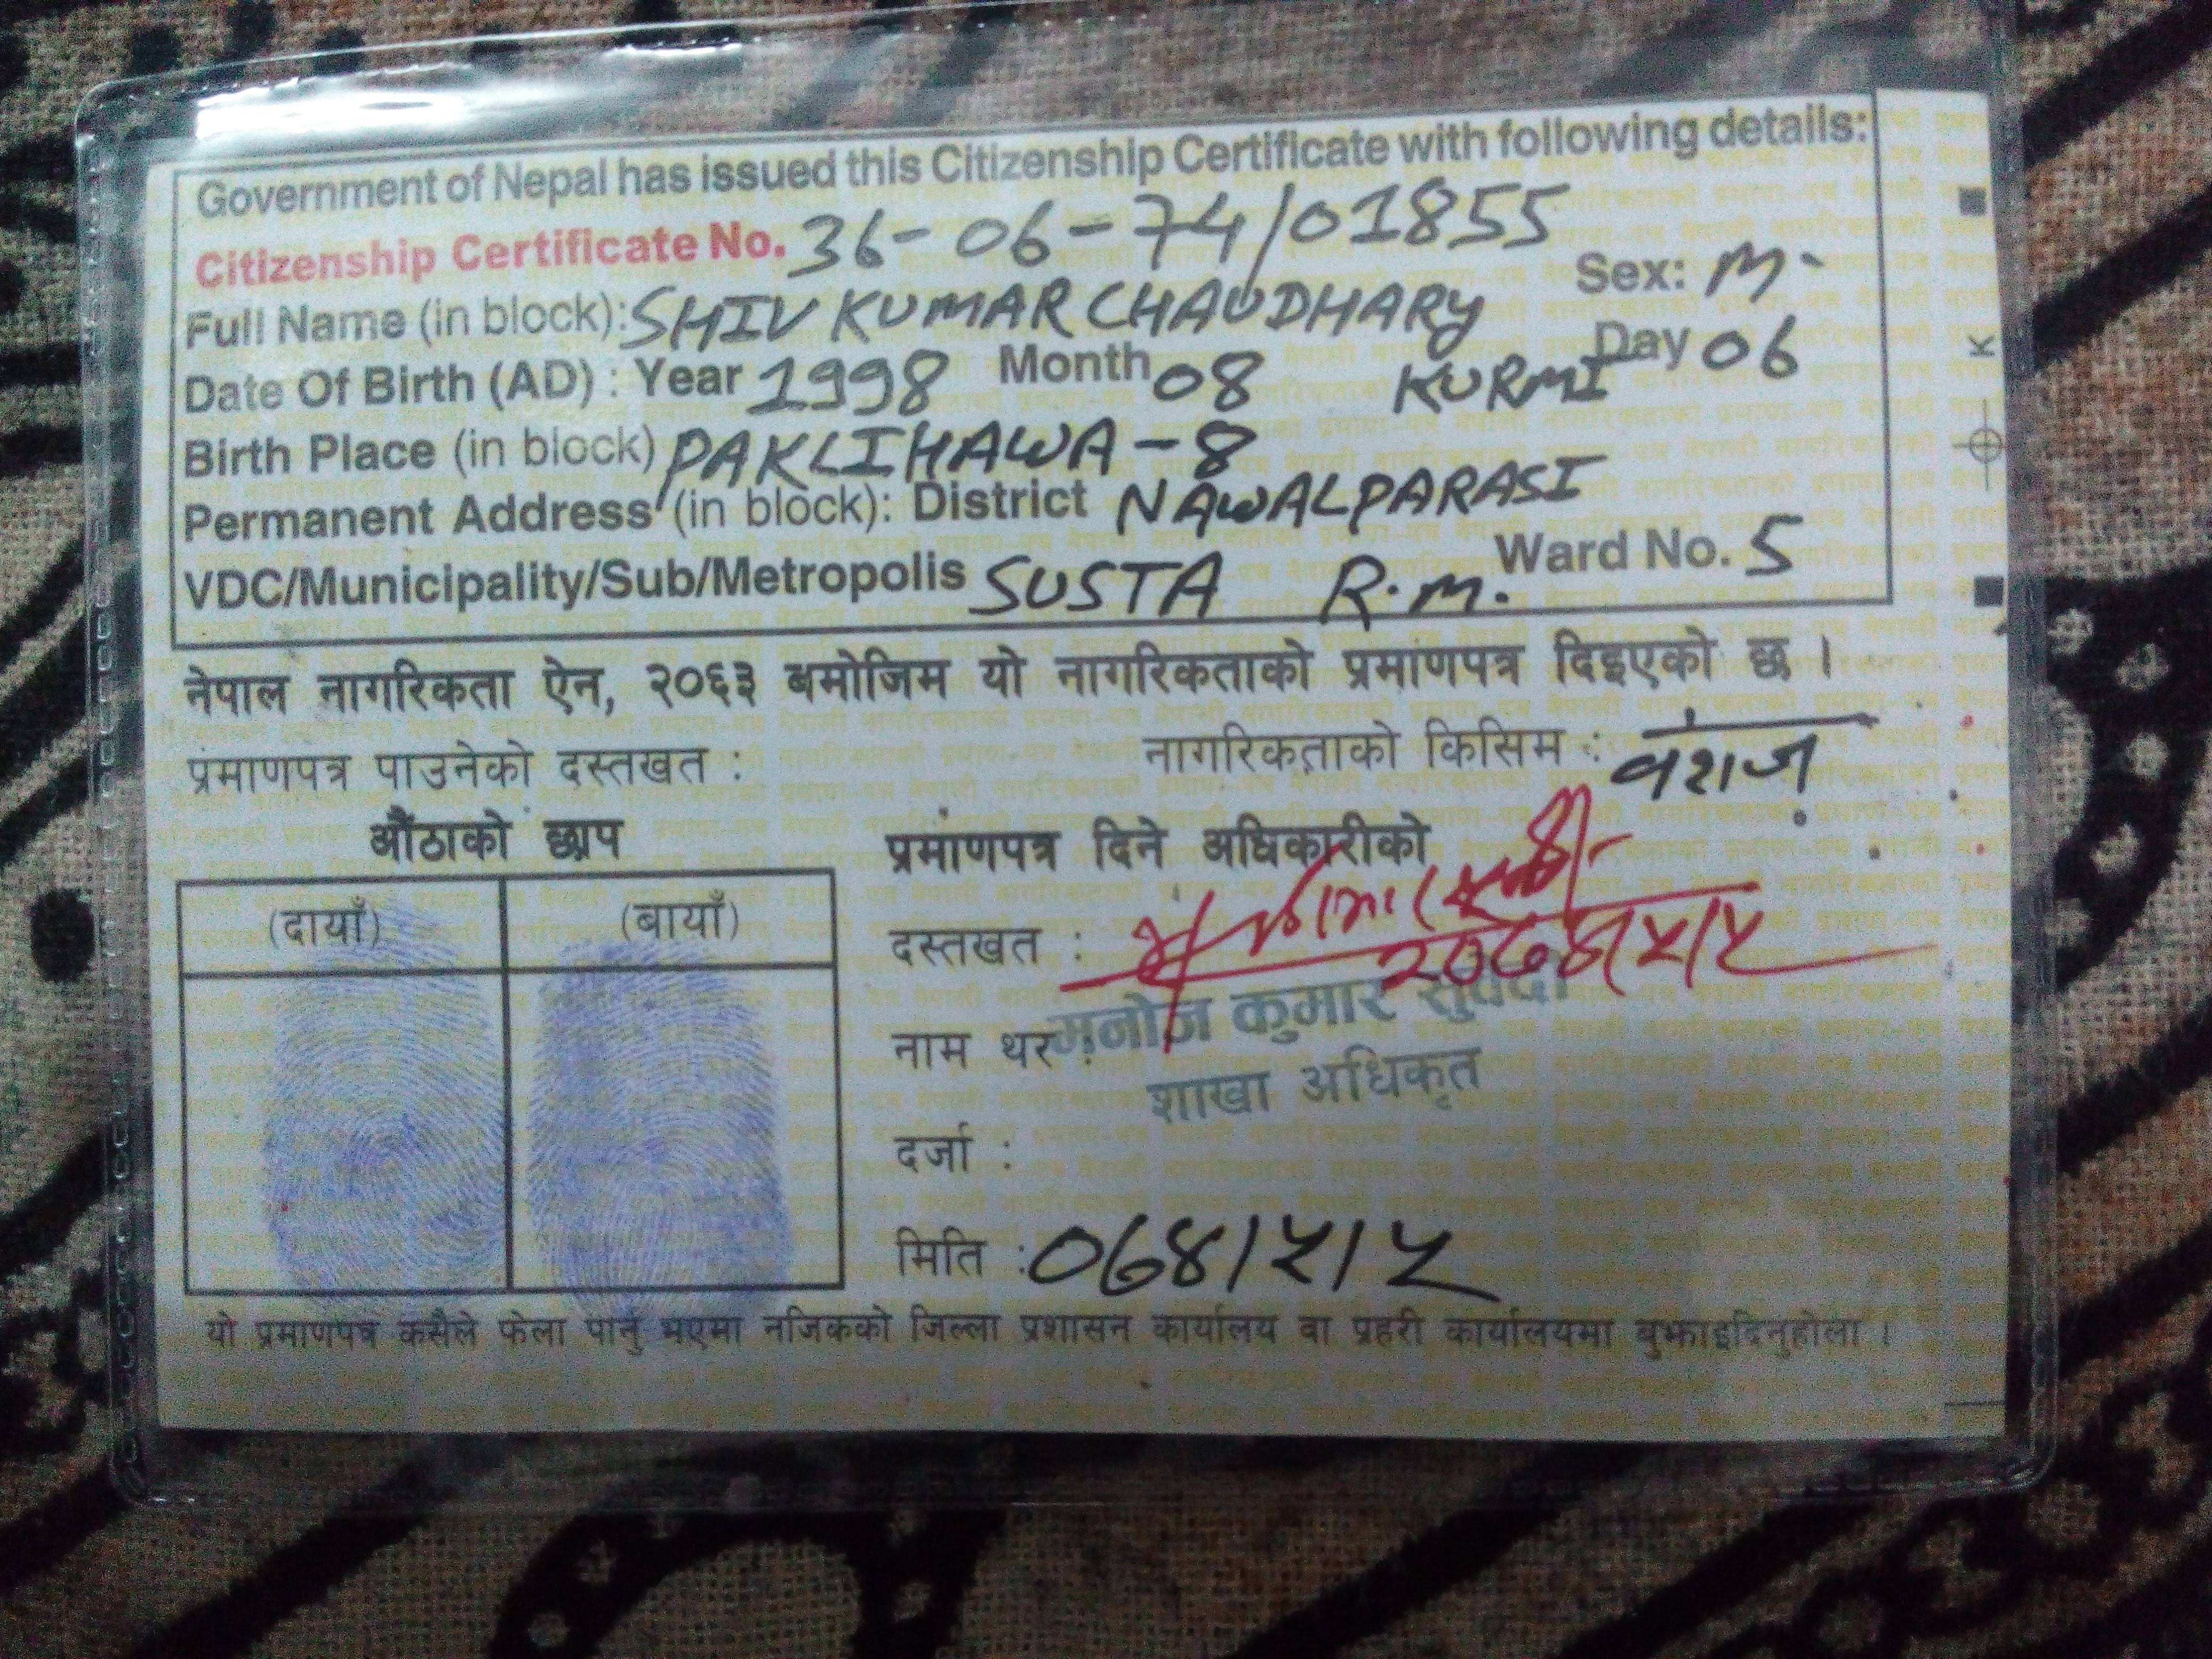 Government of Nepal has issued this Citizenship Certificate with following details:
Citizenship Certificate No. 36-06-74/01855
Sex: M.
Full Name (in block): SHIV KUMAR CHAUDHARY KURMI
Date Of Birth (AD) : Year 1998 Month 08 Day 06
Birth Place (in block) PAKLIHAWA-8
Permanent Address (in block): District NAWALPARASI
VDC/Municipality/Sub/Metropolis SUSTA R.M. Ward No. 5
नेपाल नागरिकता ऐन, २०६३ बमोजिम यो नागरिकताको प्रमाणपत्र दिइएको छ ।
प्रमाणपत्र पाउनेको दस्तखत :
नागरिकताको किसिम : वंशज
औंठाको छाप
(दायाँ) (बायाँ)
प्रमाणपत्र दिने अधिकारीको
दस्तखत : २०७४/५/५
नाम थर : मनोज कुमार सुवेदी
शाखा अधिकृत
दर्जा :
मिति : ०७४/५/५
यो प्रमाणपत्र कसैले फेला पार्नु भएमा नजिकको जिल्ला प्रशासन कार्यालय वा प्रहरी कार्यालयमा बुझाइदिनुहोला ।
K